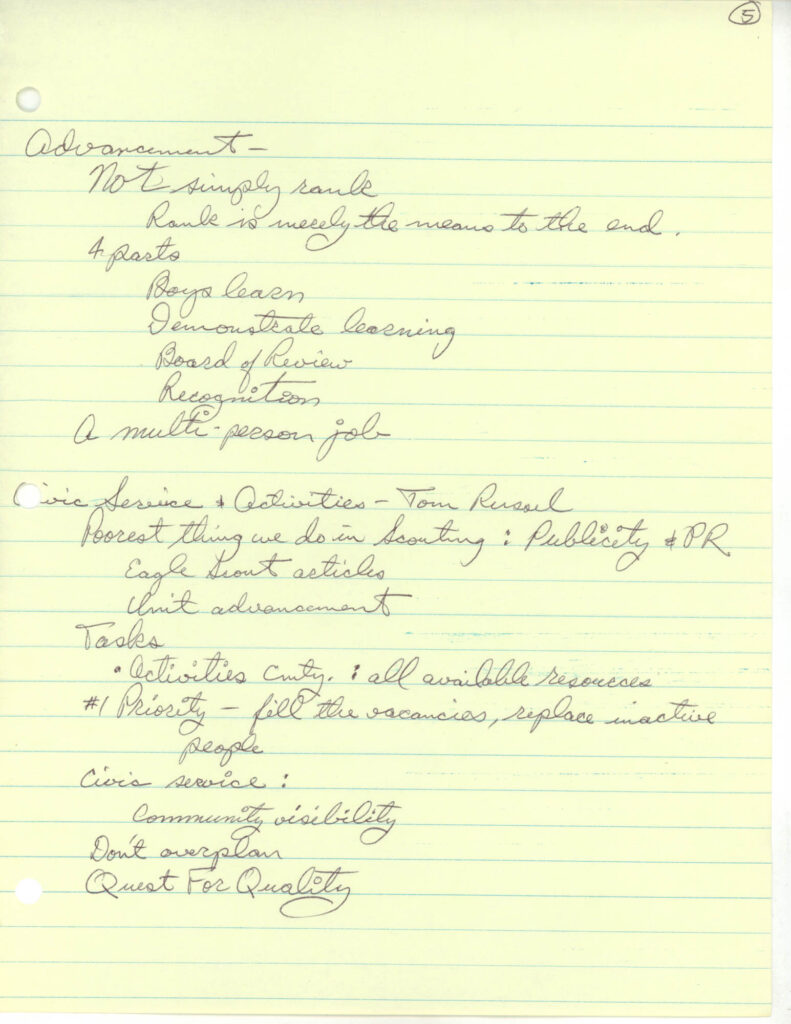 5
Advancement –
Not simply rank
Rank is merely the means to the end.
4 parts
Boys learn
Demonstrate learning
Board of Review
Recognition
A multi-person job
Civic Service & Activities – Tom Russel
Poorest thing we do in Scouting : Publicity & PR
Eagle Scout articles
Unit advancement
Tasks
• Activities Cmty. : all available resources
#1 Priority – fill the vacancies, replace inactive
people
Civic service :
Community visibility
Don't overplan
Quest For Quality